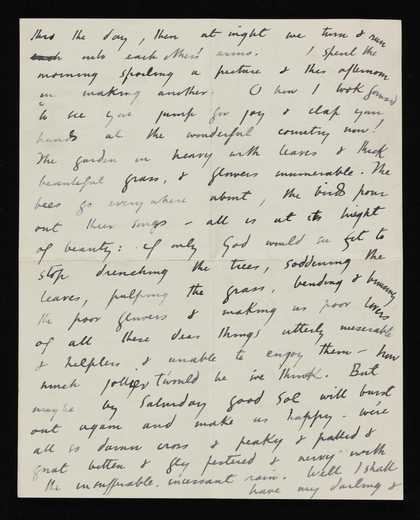 thro the day, then at night we turn & run
into each others' arms. I spent the
morning spoiling a picture & this afternoon
in making another. O how I look forward
to see you jump for joy & clap your
hands at the wonderful country now!
The garden is heavy with leaves & thick
beautiful grass, & flowers innumerable. The
bees go everywhere about, the birds pour
out their songs - all is at its height
of beauty: if only God would get to
stop drenching the trees, soddening the
leaves, pulping the grass, bending & bruising
the poor flowers & making us poor lovers
of all these dear things utterly miserable
& helpless & unable to enjoy them - how
much jollier t'would be we think. But
maybe by Saturday good Sol will burst
out again and make us happy. We're
all so damn cross & peaky & pallid &
gnat bitten & fly pestered & nervy with
the insufferable incessant rain. Well I shall
have my darling &